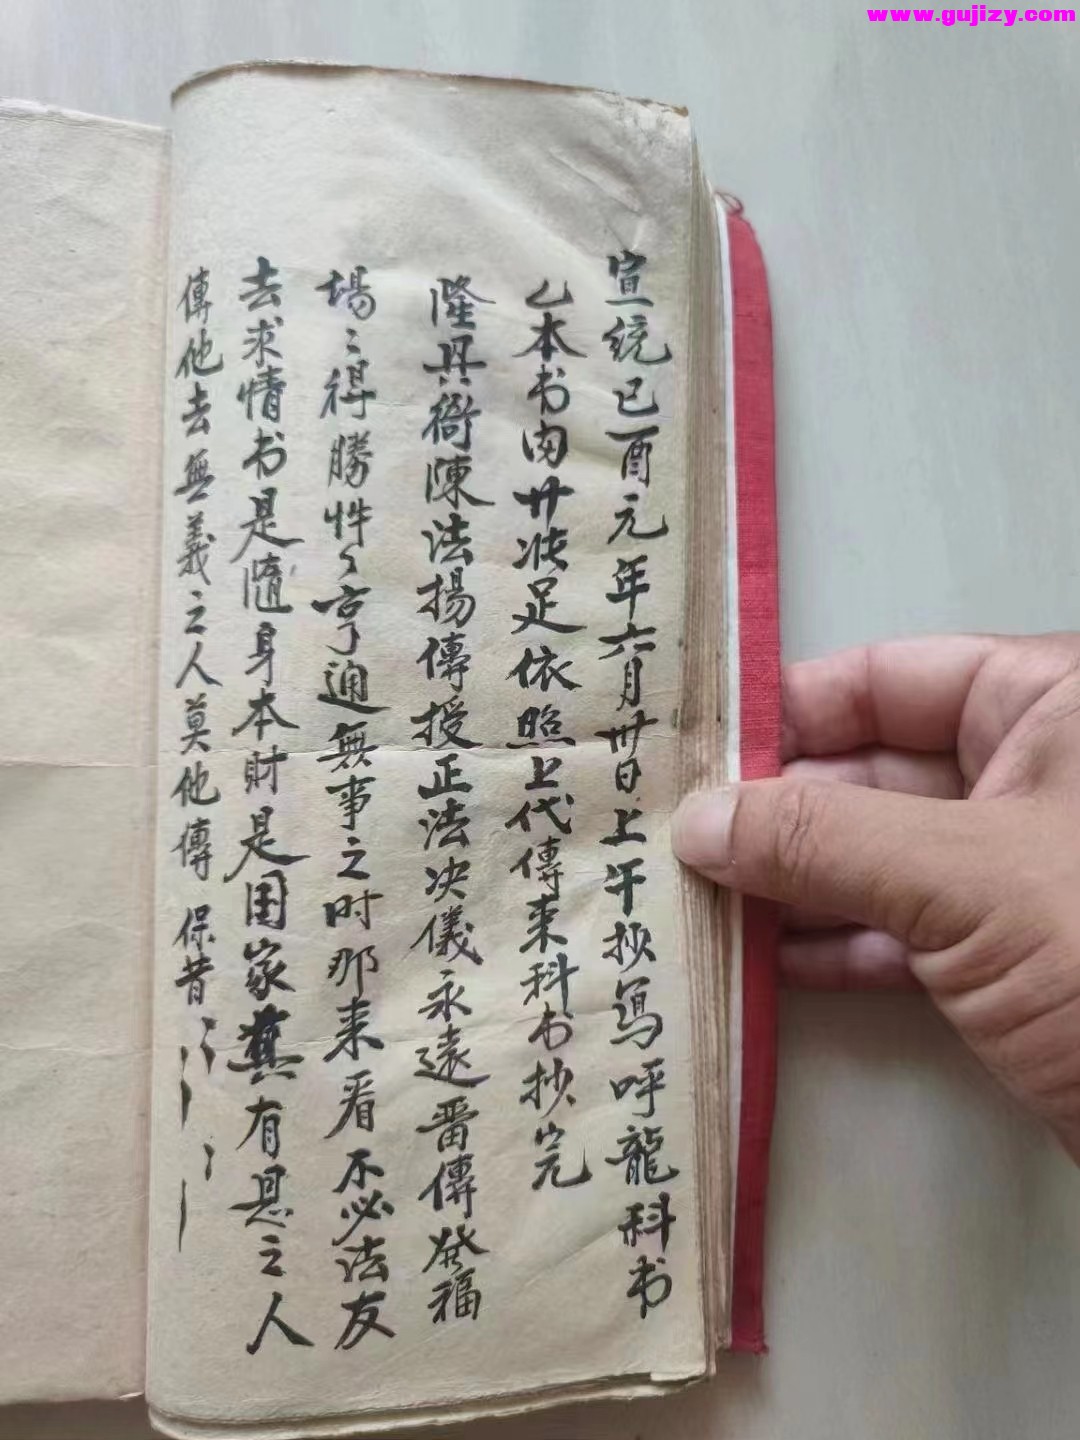 www.gujizy.com
宣統已酉元年六月卅日上午抄寫呼龍科书
乙本书内廿張足依照上代傳来科书抄完
隆興衙陳法揚傳授正法决儀永遠畨傳發福
場〻得勝件〻亨通無事之时那来看不必法友
去求情书是隨身本財是国家真有恩之人
傳他去無義之人莫他傳 保昔